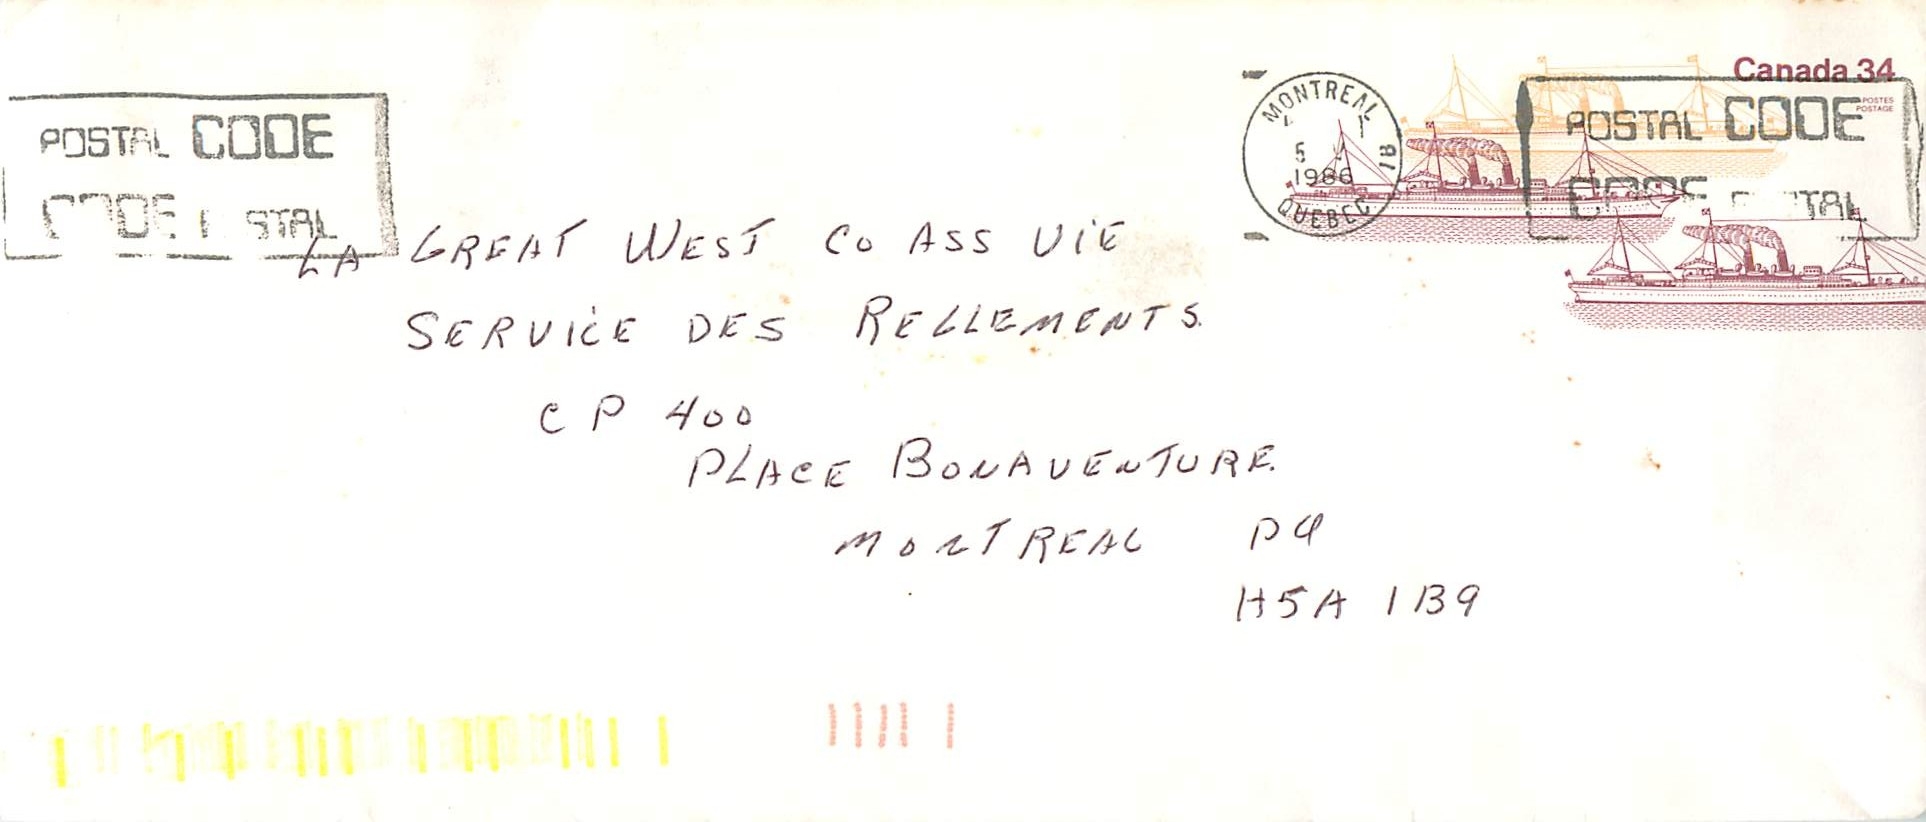 Canada 34
POSTES
POSTAGE
POSTAL CODE
CODE POSTAL
MONTREAL
5
1986
QUEBEC
18
POSTAL CODE
CODE POSTAL
LA GREAT WEST CO ASS VIE
SERVICE DES RELLEMENTS.
CP 400
PLACE BONAVENTURE.
MONTREAL PQ
H5A 1B9